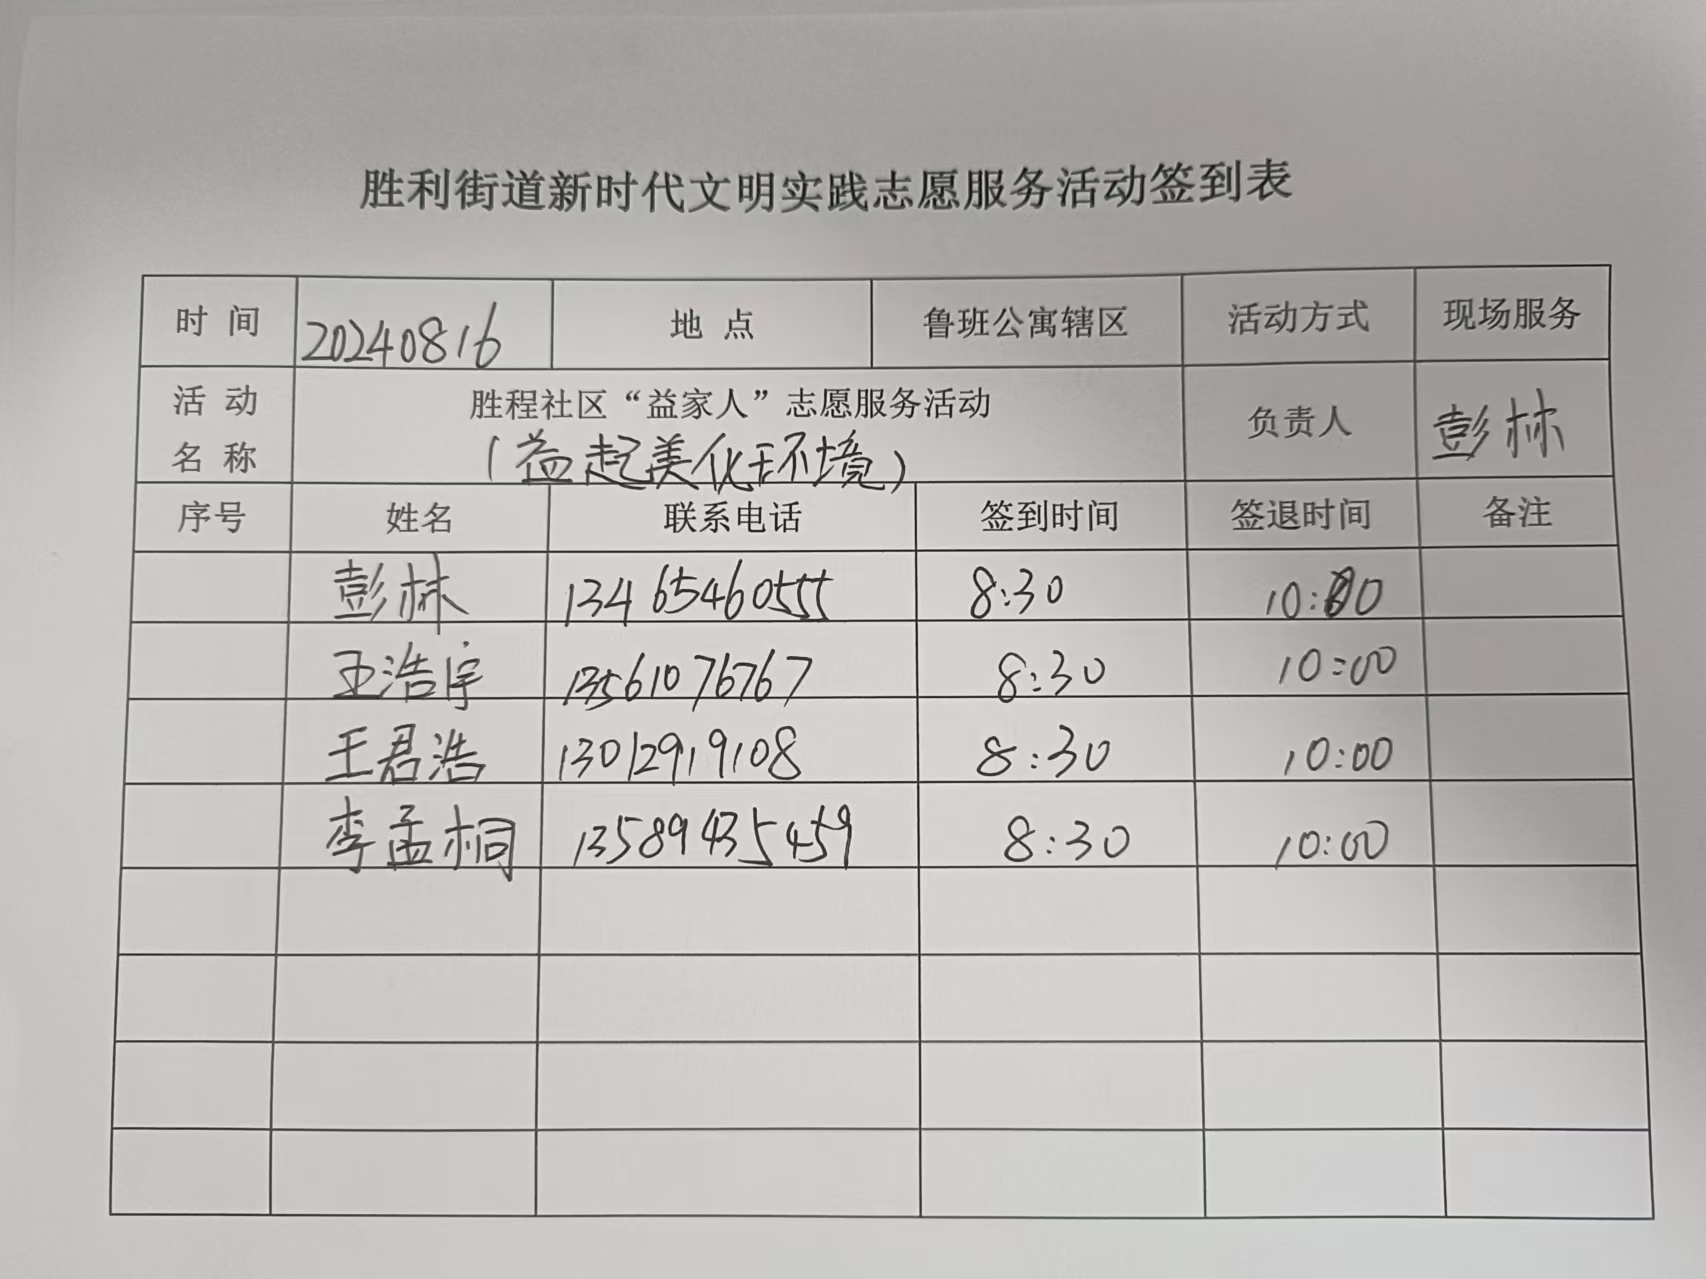 胜利街道新时代文明实践志愿服务活动签到表
时 间 20240816 地 点 鲁班公寓辖区 活动方式 现场服务
活 动 名 称 胜程社区“益家人”志愿服务活动 负责人 彭林
(益起美化环境)
序号 姓名 联系电话 签到时间 签退时间 备注
彭林 13465460555 8:30 10:00
王浩宇 13561076767 8:30 10:00
王君浩 13012919108 8:30 10:00
李孟桐 13589435459 8:30 10:00